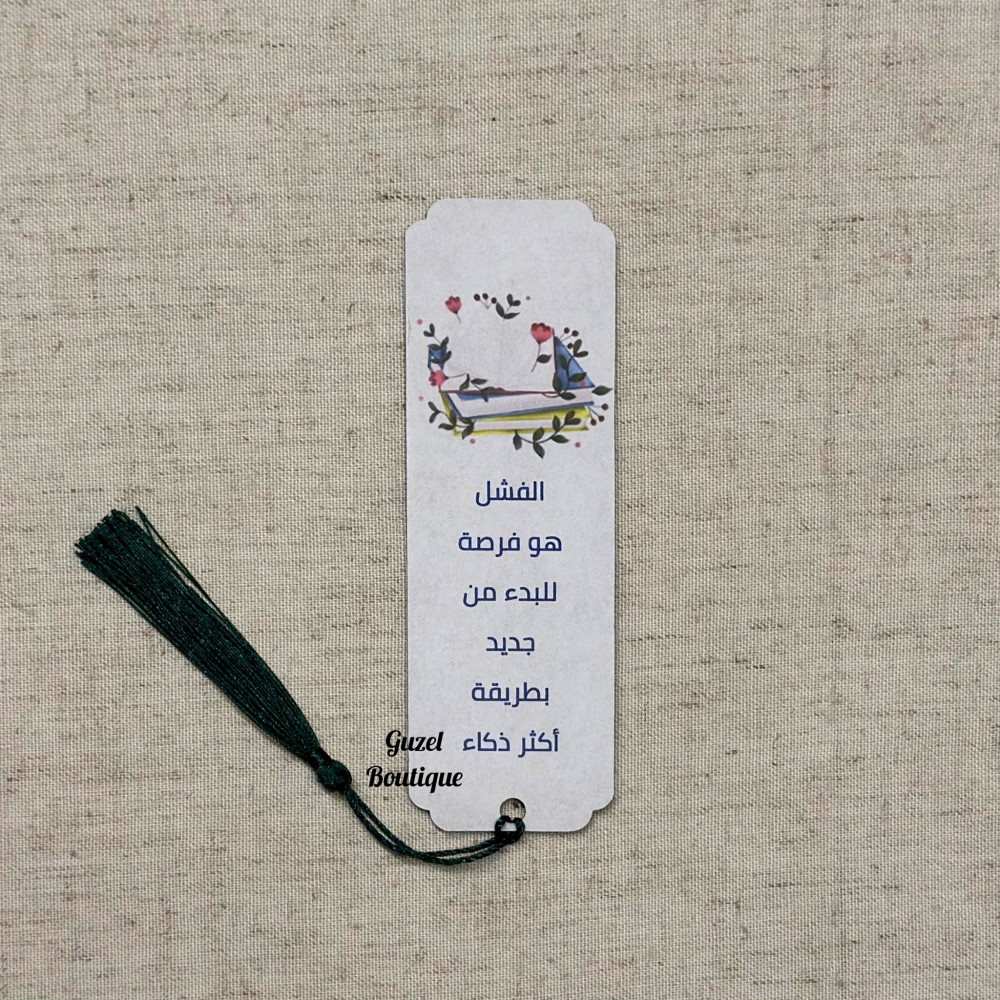 الفشل
هو فرصة
للبدء من
جديد
بطريقة
أكثر ذكاء
Guzel
Boutique